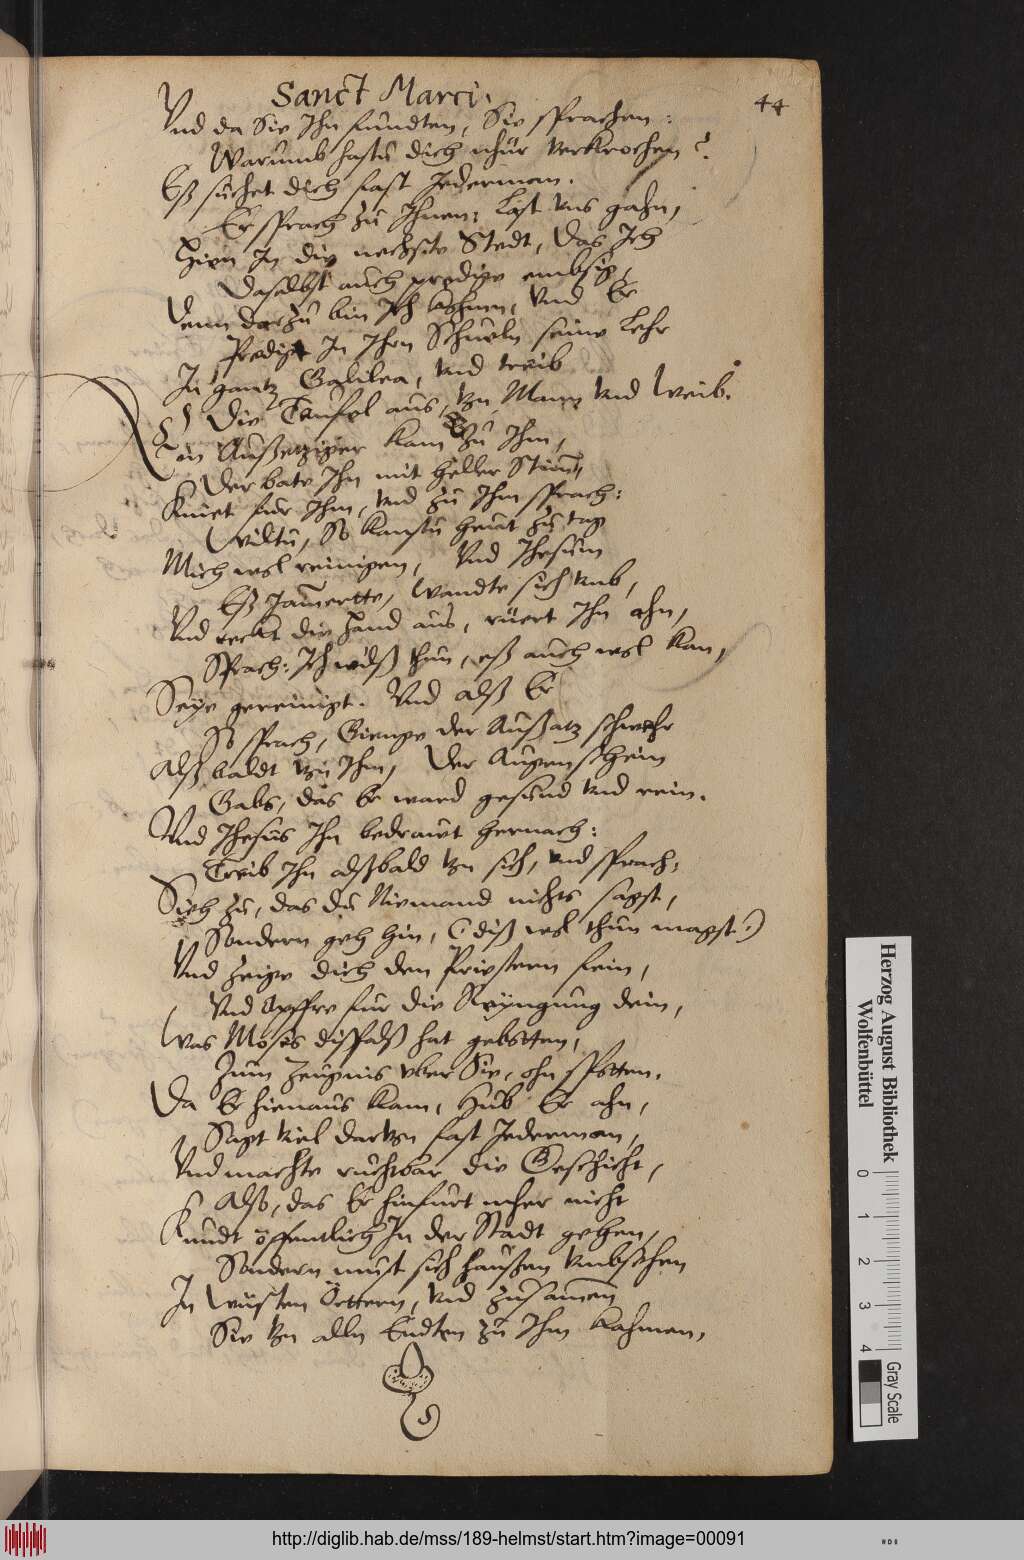 Sanct Marci.
44
Vnd da Sie Ihn fundten, Sie sprachen:
Warumb hastu dich nhur verkrochen?
Eß suchet dich fast Jederman.
Er sprach zu Ihnen: Last vns gahn,
Hien In die nechste Stedt, das Ich
Daselbst auch predige embsig,
Denn darzu bin Ich kohmen, Vnd Er
Predigt In Ihrn Schueln seine Lehr
In gantz Galilea, vnd treib
Die Teufel aus, von Mann vnd Weib.
Ein Außetziger kam zu Ihm,
Der bate Ihn mit heller Stim,
Kniet fur Ihm, vnd zu Ihm sprach:
Wiltu, So kanstu heut zu tag
Mich wol reinigen, Vnd Jhesum
Eß Jamertte, wandte sich vmb,
Vnd reckt die Hand aus, rüert Ihn ahn,
Sprach: Ich wilß thun, eß auch wol kan,
Seye gereinigt. Vnd alß Er
So sprach, Gienge der Außatz schwehr
Alß baldt von Ihm, Der Augenschein
Gabs, das Er ward gesund vnd rein.
Vnd Jhesus Ihn bedrawt hernach:
Treib Ihn alßbald von sich, vnd sprach:
Sieh zu, das du Niemand nichts sagst,
Sondern geh hin, (diß wol thun magst.)
Vnd zeige dich den Priestern fein,
Vnd opffre fur die Reyngung dein,
Was Moses dißfalß hat gebotten,
Zum Zeugnis vber Sie, ohn spotten.
Da Er hienaus kam, Hub Er ahn,
Sagt viel darvon fast Jederman,
Vnd machte ruchtbar die Geschicht,
Also, das Er hinfurt mher nicht
Kundt öffentlich In der Stadt gehen,
Sondern must sich haußen vmbsehen
In Wüsten Örttern, vnd zusamen
Sie von alln Endten zu Ihm kahmen.
Herzog August Bibliothek
Wolfenbüttel
0 1 2 3 4
Gray Scale
http://diglib.hab.de/mss/189-helmst/start.htm?image=00091